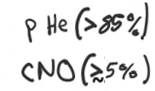 p He (>85%)
CNO (≳5%)